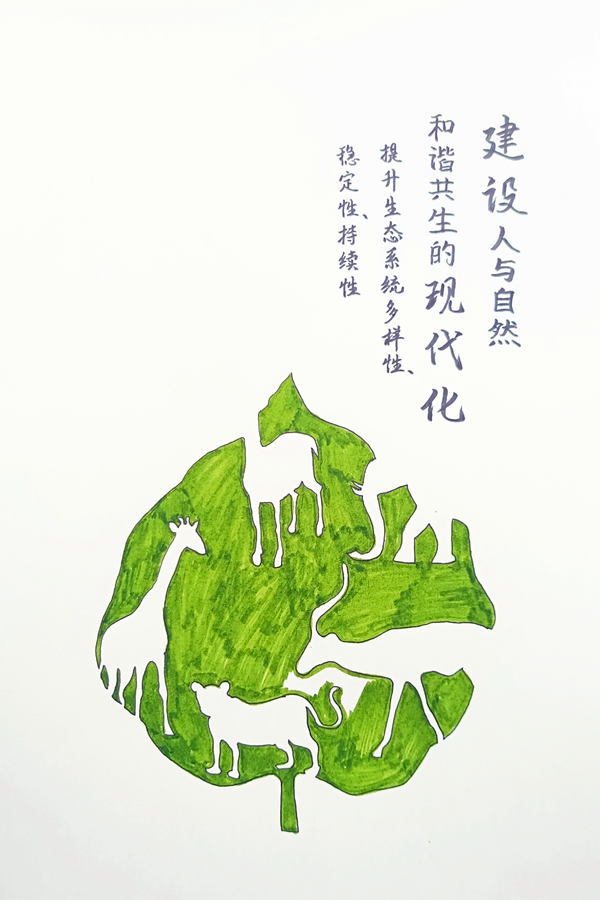 建设人与自然
和谐共生的现代化
提升生态系统多样性、
稳定性、持续性